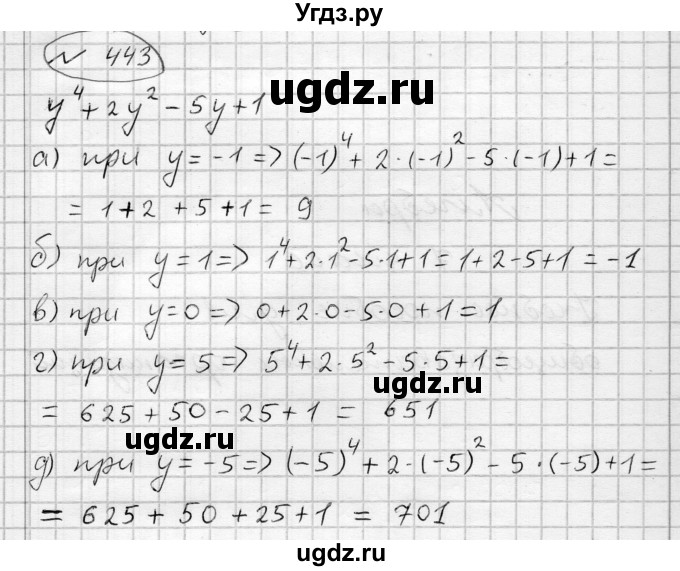 Угдз.ру
№ 443
ugdz.ru
y⁴ + 2y² - 5y + 1
а) при y = -1 => (-1)⁴ + 2·(-1)² - 5·(-1) + 1 =
= 1 + 2 + 5 + 1 = 9
б) при y = 1 => 1⁴ + 2·1² - 5·1 + 1 = 1 + 2 - 5 + 1 = -1
в) при y = 0 => 0 + 2·0 - 5·0 + 1 = 1
г) при y = 5 => 5⁴ + 2·5² - 5·5 + 1 =
ugdz.ru
= 625 + 50 - 25 + 1 = 651
ugdz.ru
д) при y = -5 => (-5)⁴ + 2·(-5)² - 5·(-5) + 1 =
= 625 + 50 + 25 + 1 = 701
ugdz.ru